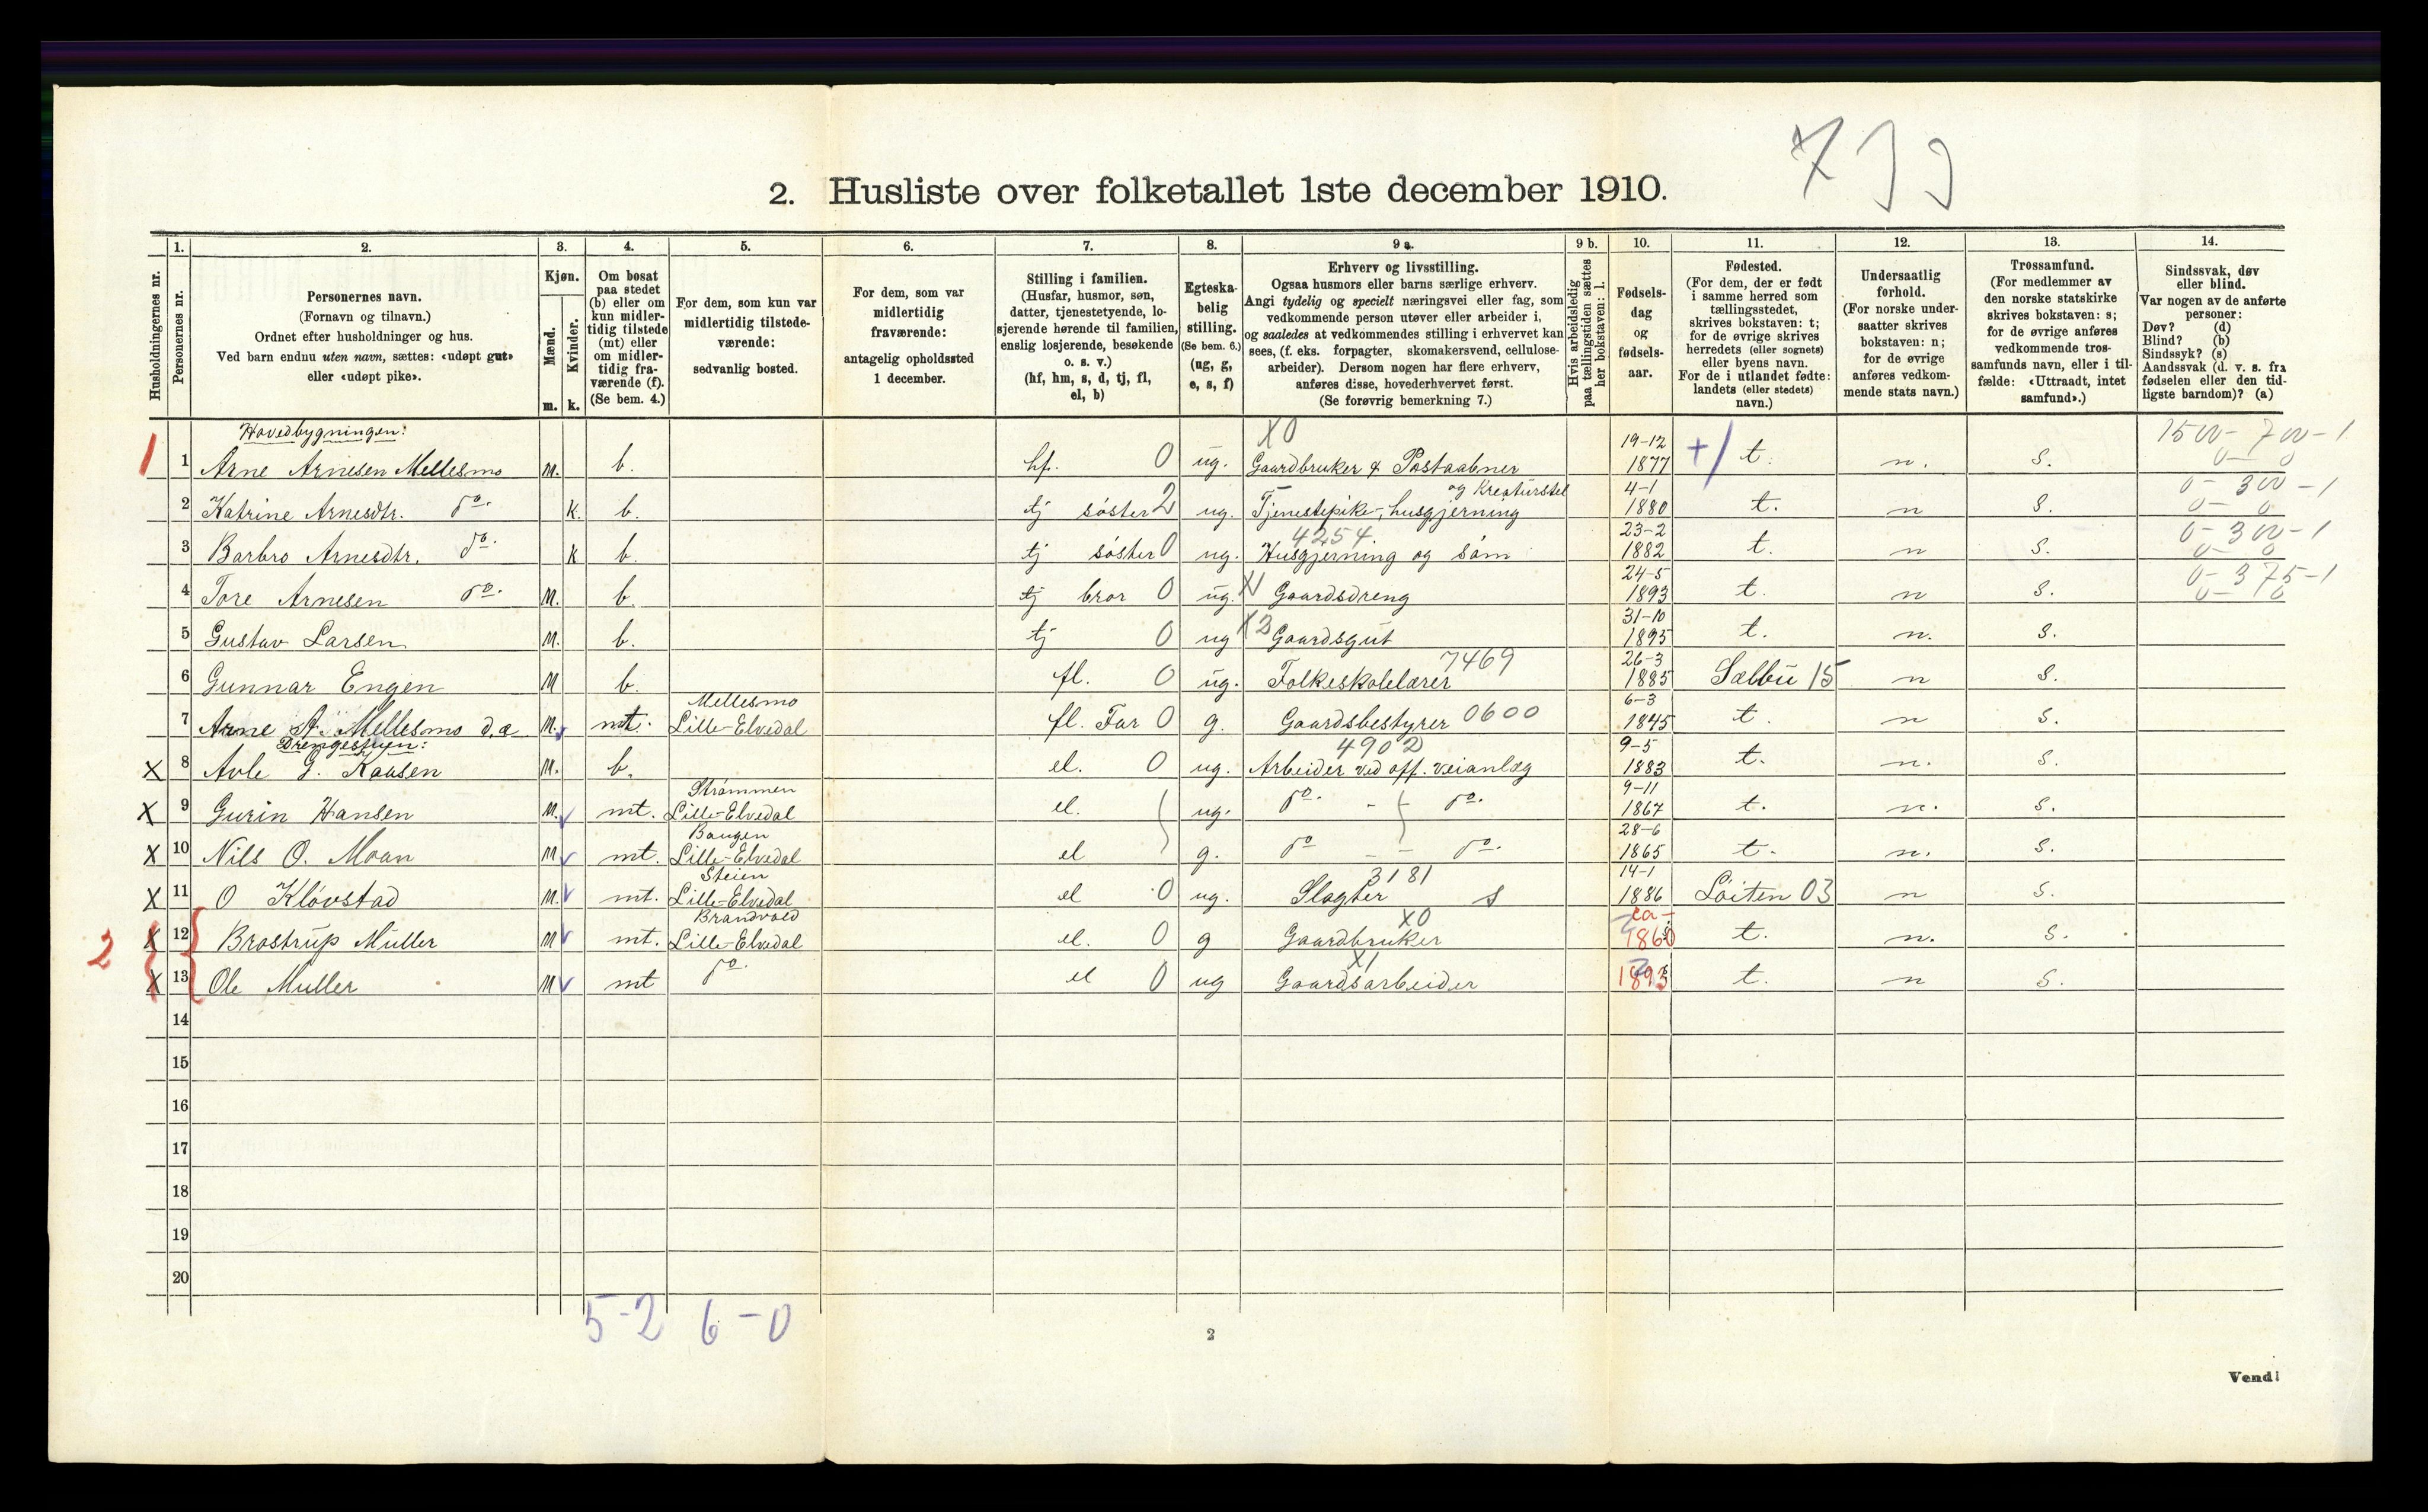 7 J J
2. Husliste over folketallet 1ste december 1910.
Husholdningernes nr.
1. Personernes nr.
2. Personernes navn. (Fornavn og tilnavn.) Ordnet efter husholdninger og hus. Ved barn endnu uten navn, sættes: «udøpt gut» eller «udøpt pike».
3. Kjøn. Mænd. m. Kvinder. k.
4. Om bosat paa stedet (b) eller om kun midlertidig tilstede (mt) eller om midlertidig fraværende (f). (Se bem. 4.)
5. For dem, som kun var midlertidig tilstedeværende: sedvanlig bosted.
6. For dem, som var midlertidig fraværende: antagelig opholdssted 1 december.
7. Stilling i familien. (Husfar, husmor, søn, datter, tjenestetyende, losjerende hørende til familien, enslig losjerende, besøkende o. s. v.) (hf, hm, s, d, tj, fl, el, b)
8. Egteskabelig stilling. (Se bem. 6.) (ug, g, e, s, f)
9 a. Erhverv og livsstilling. Ogsaa husmors eller barns særlige erhverv. Angi tydelig og specielt næringsvei eller fag, som vedkommende person utøver eller arbeider i, og saaledes at vedkommendes stilling i erhvervet kan sees, (f. eks. forpagter, skomakersvend, cellulosearbeider). Dersom nogen har flere erhverv, anføres disse, hovederhvervet først. (Se forøvrig bemerkning 7.)
9 b. Hvis arbeidsledig paa tællingstiden sættes her bokstaven: l.
10. Fødselsdag og fødselsaar.
11. Fødested. (For dem, der er født i samme herred som tællingsstedet, skrives bokstaven: t; for de øvrige skrives herredets (eller sognets) eller byens navn. For de i utlandet fødte: landets (eller stedets) navn.)
12. Undersaatlig forhold. (For norske undersaatter skrives bokstaven: n; for de øvrige anføres vedkommende stats navn.)
13. Trossamfund. (For medlemmer av den norske statskirke skrives bokstaven: s; for de øvrige anføres vedkommende trossamfunds navn, eller i tilfælde: «Uttraadt, intet samfund».)
14. Sindssvak, døv eller blind. Var nogen av de anførte personer: Døv? (d) Blind? (b) Sindssyk? (s) Aandssvak (d. v. s. fra fødselen eller den tidligste barndom)? (a)
Hovedbygningen:
1 1 Arne Arnesen Mellesmo m. b. hf. 0 ug. X0 Gaardbruker & Postaabner 19-12 1877 +/ t. n. s. 1500-700-1 0-0
2 Katrine Arnesdtr. do. k. b. tj søster 2 ug. Tjenestepike, husgjerning og Kreaturstel 4-1 1880 t. n s. 0-300-1 0-0
3 Barbro Arnesdtr. do. k b. tj søster 0 ug. 4254 Husgjerning og søm 23-2 1882 t. n s. 0-300-1 0-0
4 Tore Arnesen do. m. b. tj bror 0 ug. X1 Gaardsdreng 24-5 1893 t. n s. 0-375-1 0-0
5 Gustav Larsen m. b. tj 0 ug X3 Gaardsgut 31-10 1895 t. n. s.
6 Gunnar Engen m b. fl. 0 ug. Folkeskolelærer 7469 26-3 1885 Sælbu 15 n s.
7 Arne A. Mellesmo d.æ m. mt. Mellesmo Lille-Elvedal fl. Far 0 g. Gaardsbestyrer 0600 6-3 1845 t. n s.
Drengestuen:
X 8 Avle G. Kaasen m. b. el. 0 ug. 4902 Arbeider ved off. veianlæg 9-5 1883 t. n. s.
X 9 Gurin Hansen m. mt. Strømmen Lille-Elvedal el. ug. do. - do. 9-11 1867 t. n. s.
X 10 Nils O. Moan m mt. Baugen Lille-Elvedal el g. do - - do. 28-6 1865 t. n. s.
X 11 O Kløvstad m. mt. Steien Lille-Elvedal el 0 ug. 3181 Slagter s 14-1 1886 Løiten 03 n s.
2 X 12 Brostrup Müller m mt. Brandvold Lille-Elvedal el. 0 g X0 Gaardbruker ca- 1860 t. n. s.
X 13 Ole Müller m mt do. el 0 ug X1 Gaardsarbeider 1893 t. n s.
14
15
16
17
18
19
20
5-2 6-0
2
Vend!